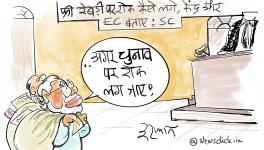 फ्री रेवड़ी पर रोक कैसे लगे, केंद्र और
EC बताए : SC
..अगर चुनाव
पर रोक
लग जाए!
इरफ़ान
@Newsclick.in